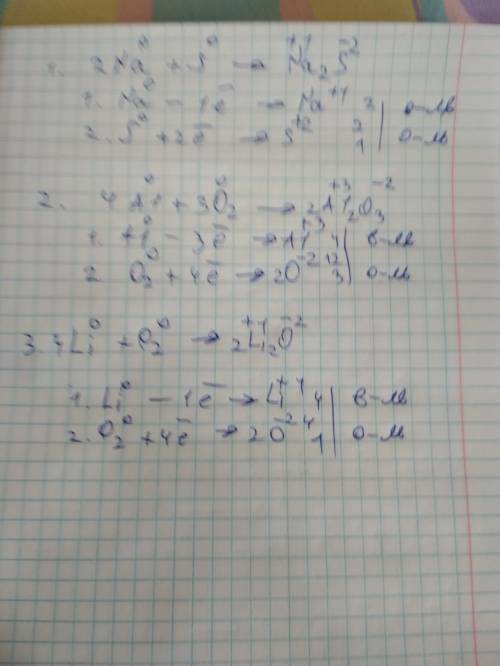 1. 2Na⁰ + S⁰ → Na₂⁺¹S⁻²
1. Na⁰ − 1e̅ → Na⁺¹ 2
2. S⁰ + 2e̅ → S 2 1 | о-ль
2. 4Al⁰ + 3O₂⁰ → 2Al₂⁺³O₃⁻²
1. Al⁰ − 3e̅ → Al⁺³ 4 | в-ль
2. O₂⁰ + 4e̅ → 2O⁻² 12 3 | о-ль
3. 4Li⁰ + O₂⁰ → 2Li₂⁺¹O⁻²
1. Li⁰ − 1e̅ → Li⁺¹ 4 | в-ль
2. O₂⁰ + 4e̅ → 2O⁻² 4 1 | о-ль